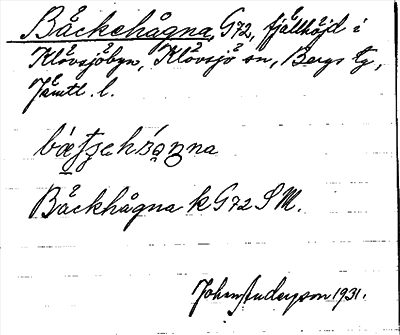 Bäckehågna, G72, fjällhöjd i
Klövsjöbyn, Klövsjö sn, Bergs tg,
Jämtl. l.
Bäckhågna k G72 S M.
John Anderson 1931.